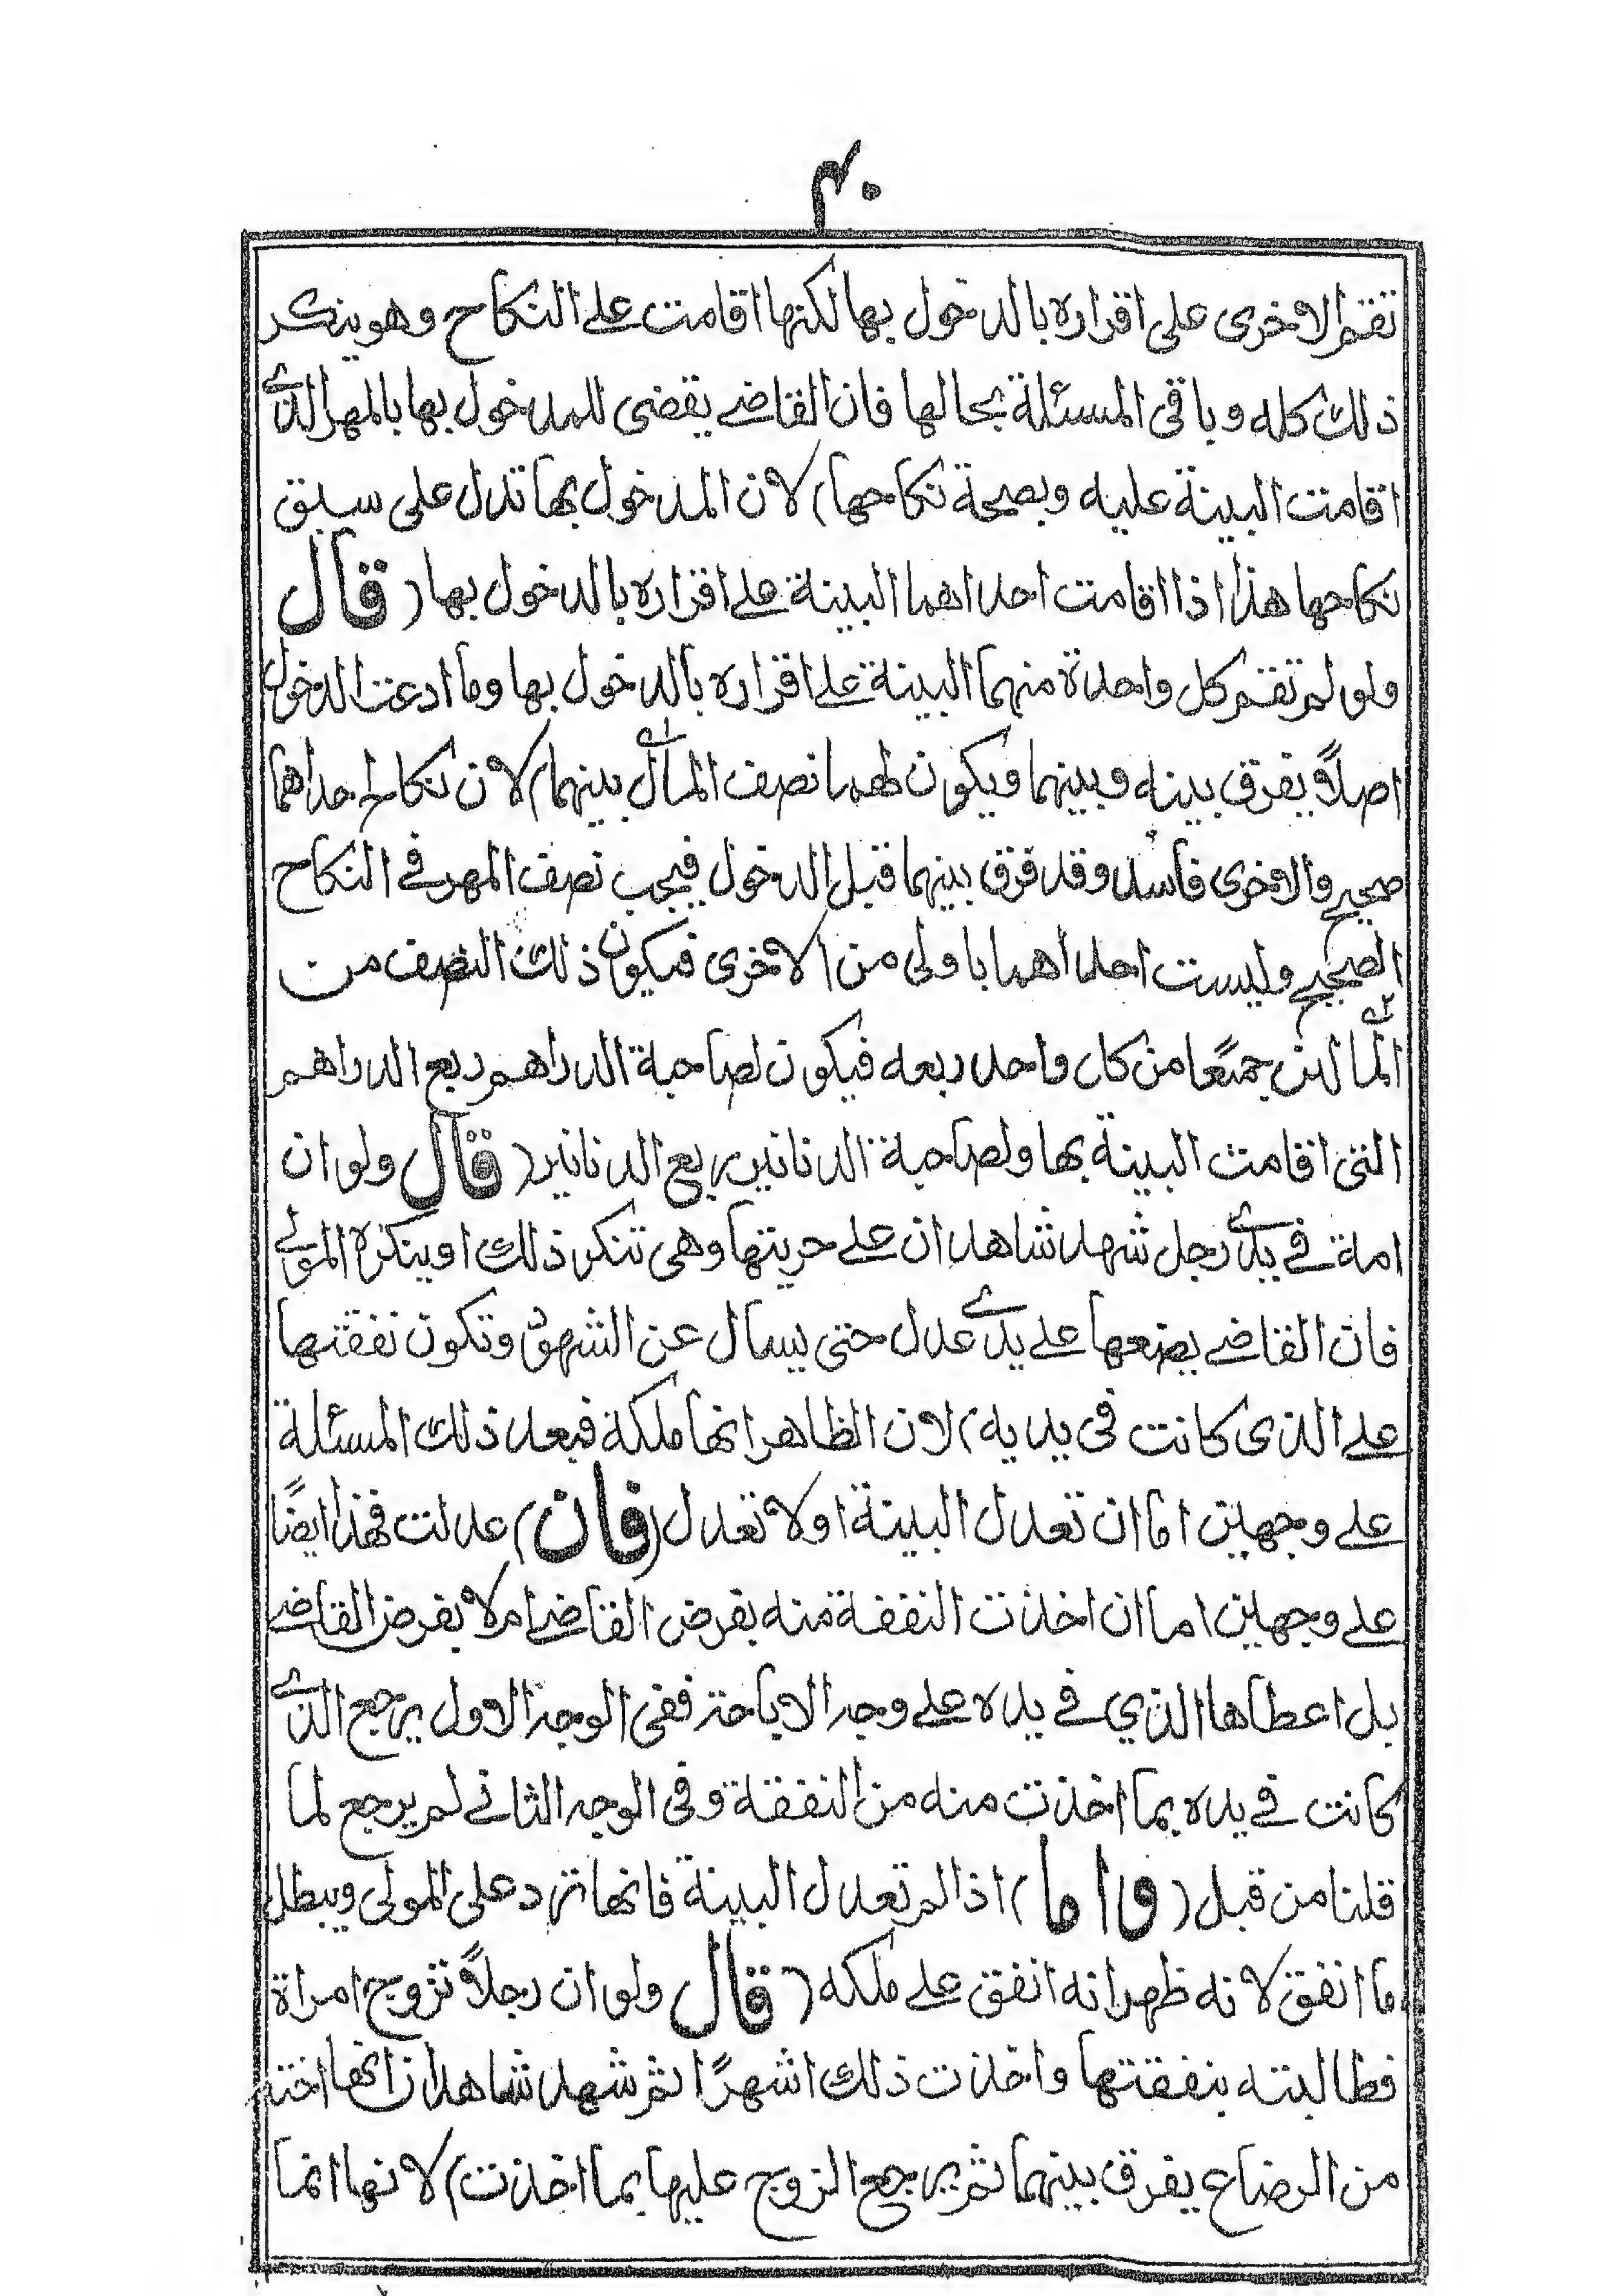 ۴۰
تقم الاخرى على اقراره بالدخول بها لكنها اقامت على النكاح وهو ينكر
ذلك كله وباقى المسئلة بحالها فان القاضے يقضى للمدخول بها بالمهر الذے
اقامت البينة عليه وبصحة نكاحها) لان المدخول بها تدل على سبق
نكاحها هذا اذا اقامت احداهما البينة على اقراره بالدخول بها (قال
ولو لم تقم كل واحدة منهما البينة على اقراره بالدخول بها وما ادعت الدخول
اصلاً يفرق بينه وبينهما ويكون لهما نصف المالين بينهما) لان نكاح احداهما
صحيح والاخرى فاسد وقد فرق بينهما قبل الدخول فيجب نصف المهر فے النكاح
الصحيح وليست احداهما باولى من الاخرى فيكون ذلك النصف من
المالين جميعًا من كل واحد ربعه فيكون لصاحبة الدراهم ربع الدراهم
التى اقامت البينة بها ولصاحبة الدنانير ربع الدنانير (قال ولو ان
امة فے يدے رجل شهد شاهدان على حريتها وهى تنكر ذلك او ينكره المولے
فان القاضے يضعها على يدے عدل حتى يسال عن الشهود وتكون نفقتها
على الذى كانت فى يديه) لان الظاهر انها ملكه فبعد ذلك المسئلة
على وجهين اما ان تعدل البينة او لا تعدل (فان) عدلت فهذا ايضًا
على وجهين اما ان اخذت النفقة منه بفرض القاضے ام لا بفرض القاضے
بل اعطاها الذي فے يده على وجه الاباحة ففى الوجه الاول يرجع الذے
كانت فے يده بما اخذت منه من النفقة وفى الوجه الثانے لم يرجع لما
قلنا من قبل (واما) اذا لم تعدل البينة فانها ترد على المولى ويبطل
ما انفق لانه ظهر انه انفق على ملكه (قال ولو ان رجلاً تزوج امراة
فطالبته بنفقتها واخذت ذلك اشهرًا ثم شهد شاهدان انها اخته
من الرضاع يفرق بينهما ثم يرجع الزوج عليها بما اخذت) لانها انما